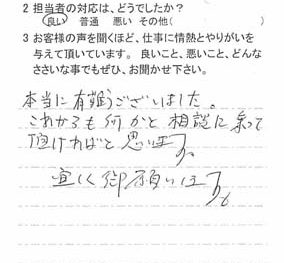 2 担当者の対応は、どうでしたか?
良い 普通 悪い その他( )
3 お客様の声を聞くほど、仕事に情熱とやりがいを
与えて頂いています。 良いこと、悪いこと、どんな
ささいな事でもぜひ、お聞かせ下さい。
本当に有難うございました。
これからも何かと相談に乗って
頂ければと思います。
宜しく御願いします。